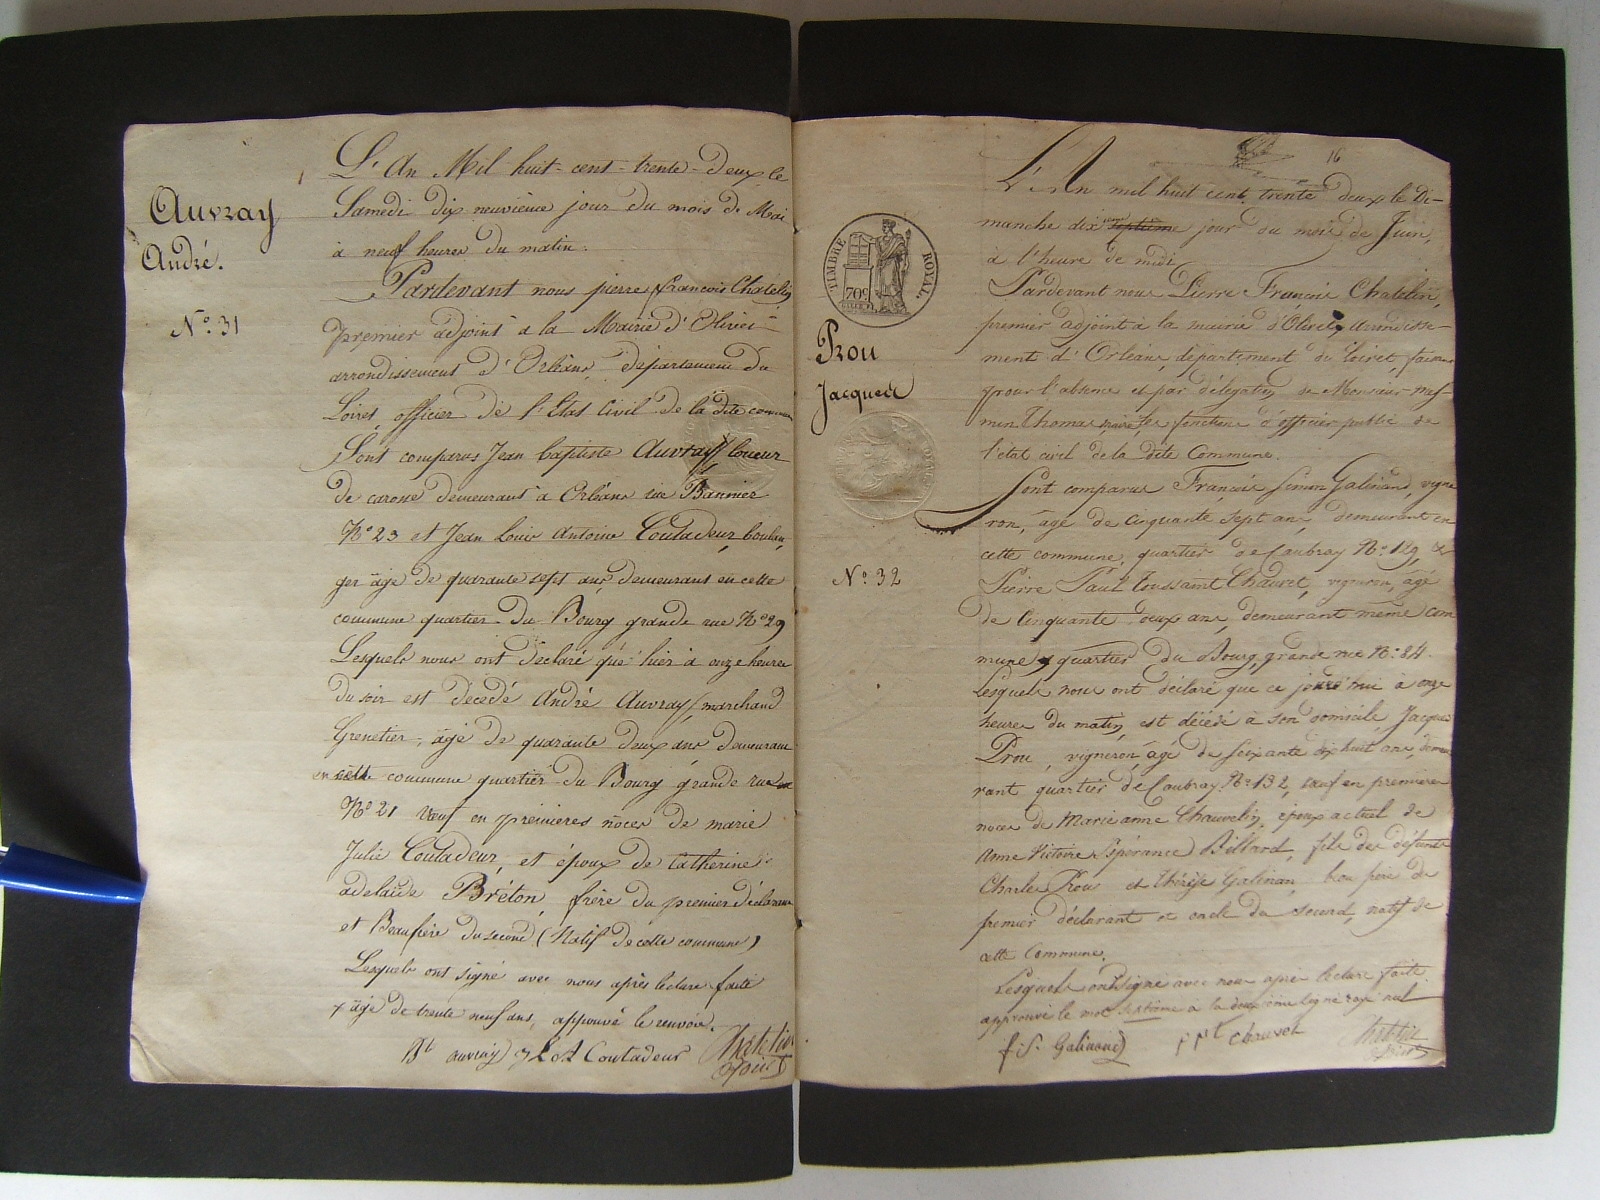 Auvray
André.
N° 31
L'An Mil huit-cent-trente-Deux le
Samedi dix neuvieme jour du mois de Mai
à neuf heures du matin.
Pardevant nous pierre françois Chatelin
premier adjoint a la Mairie d'Olivet
arrondissement d'Orléans, département du
Loiret, officier de l'Etat Civil de la dite commune
Sont comparus Jean baptiste Auvray loueur
de carosse demeurant à Orléans rue Bannier
N° 23 et Jean Louis Antoine Coutadeur, boulan,
ger âgé de quarante sept ans, demeurant en cette
commune quartier du Bourg grande rue N° 29
Lesquels nous ont déclaré que hier à onze heures
du soir est décédé André Auvray, marchand
Grenetier, âgé de quarante deux ans demeurant
en cette commune quartier du Bourg grande rue
N° 21 Veuf en premières noces de marie
Julie Coutadeur, et époux de Catherine
adelaïde Bréton, frère du premier déclarant
et Beaufrère du second (Natif de cette commune)
Lesquels ont signé avec nous après lecture faite
x âgé de trente neuf ans, approuvé le renvoi.
Bt auvray J L A Coutadeur Chatelin
adjoint
16
TIMBRE ROYAL.
70c
Prou
Jacques
N° 32
L'An mil huit cent trente deux le Di-
manche dix septieme jour du mois de Juin,
à l'heure de midi
Pardevant nous Pierre François Chatelin,
premier adjoint à la mairie d'Olivet, arrondisse-
ment d'Orléans, département du Loiret, faisant
pour l'absence et par délégation de Monsieur
Thomas, maire, les fonctions d'officier public de
l'état civil de la dite Commune.
Sont comparus François Simon Galinand, vigne
ron, âgé de cinquante sept ans, demeurant en
cette commune, quartier de Caubray N° 129, &
Pierre Paul toussaint Chauvet, vigneron, âgé
de Cinquante deux ans, demeurant même com
mune, quartier du Bourg, grande rue N° 84.
Lesquels nous ont déclaré que ce jourd'hui à onze
heures du matin, est décédé à son domicile, Jacques
Prou, vigneron, âgé de soixante dix huit ans, demeu
rant quartier de Caubray N° 132, veuf en premieres
noces de Marie anne Chauvelin, époux actuel de
Anne Victoire Espérance Billard, fils des défunts
Charles Prou et thérèse Galinan, beau père du
premier déclarant et oncle du second, natif de
cette Commune.
Lesquels ont signé avec nous après lecture faite.
approuvé le mot septieme à la deuxieme ligne rayé nul
f. S. Galinand P P t Chauvet Chatelin
adjoint